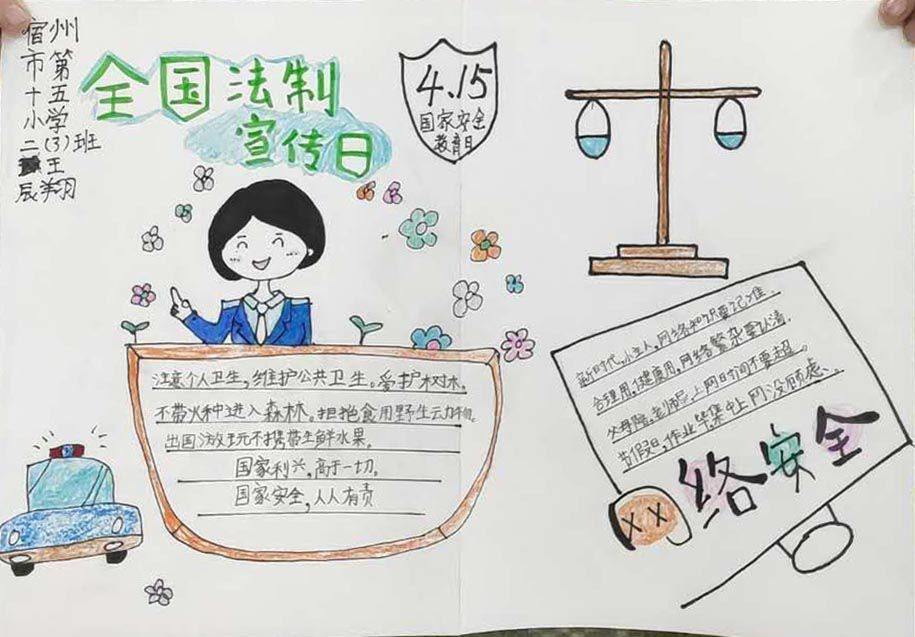 宿州
市第
十五
小学
二(3)班
王
辰翔
全国法制
宣传日
4.15
国家安全
教育日
注意个人卫生,维护公共卫生。爱护树木,
不带火种进入森林。拒绝食用野生动物。
出国游玩不携带生鲜水果。
国家利兴,高于一切。
国家安全,人人有责
新时代,小主人,网络知识要记准.
合理用,健康用,网络繁杂要认清.
父母陪,老师管,上网时间不要超.
节假日,作业毕,集中上网没顾虑.
络安全